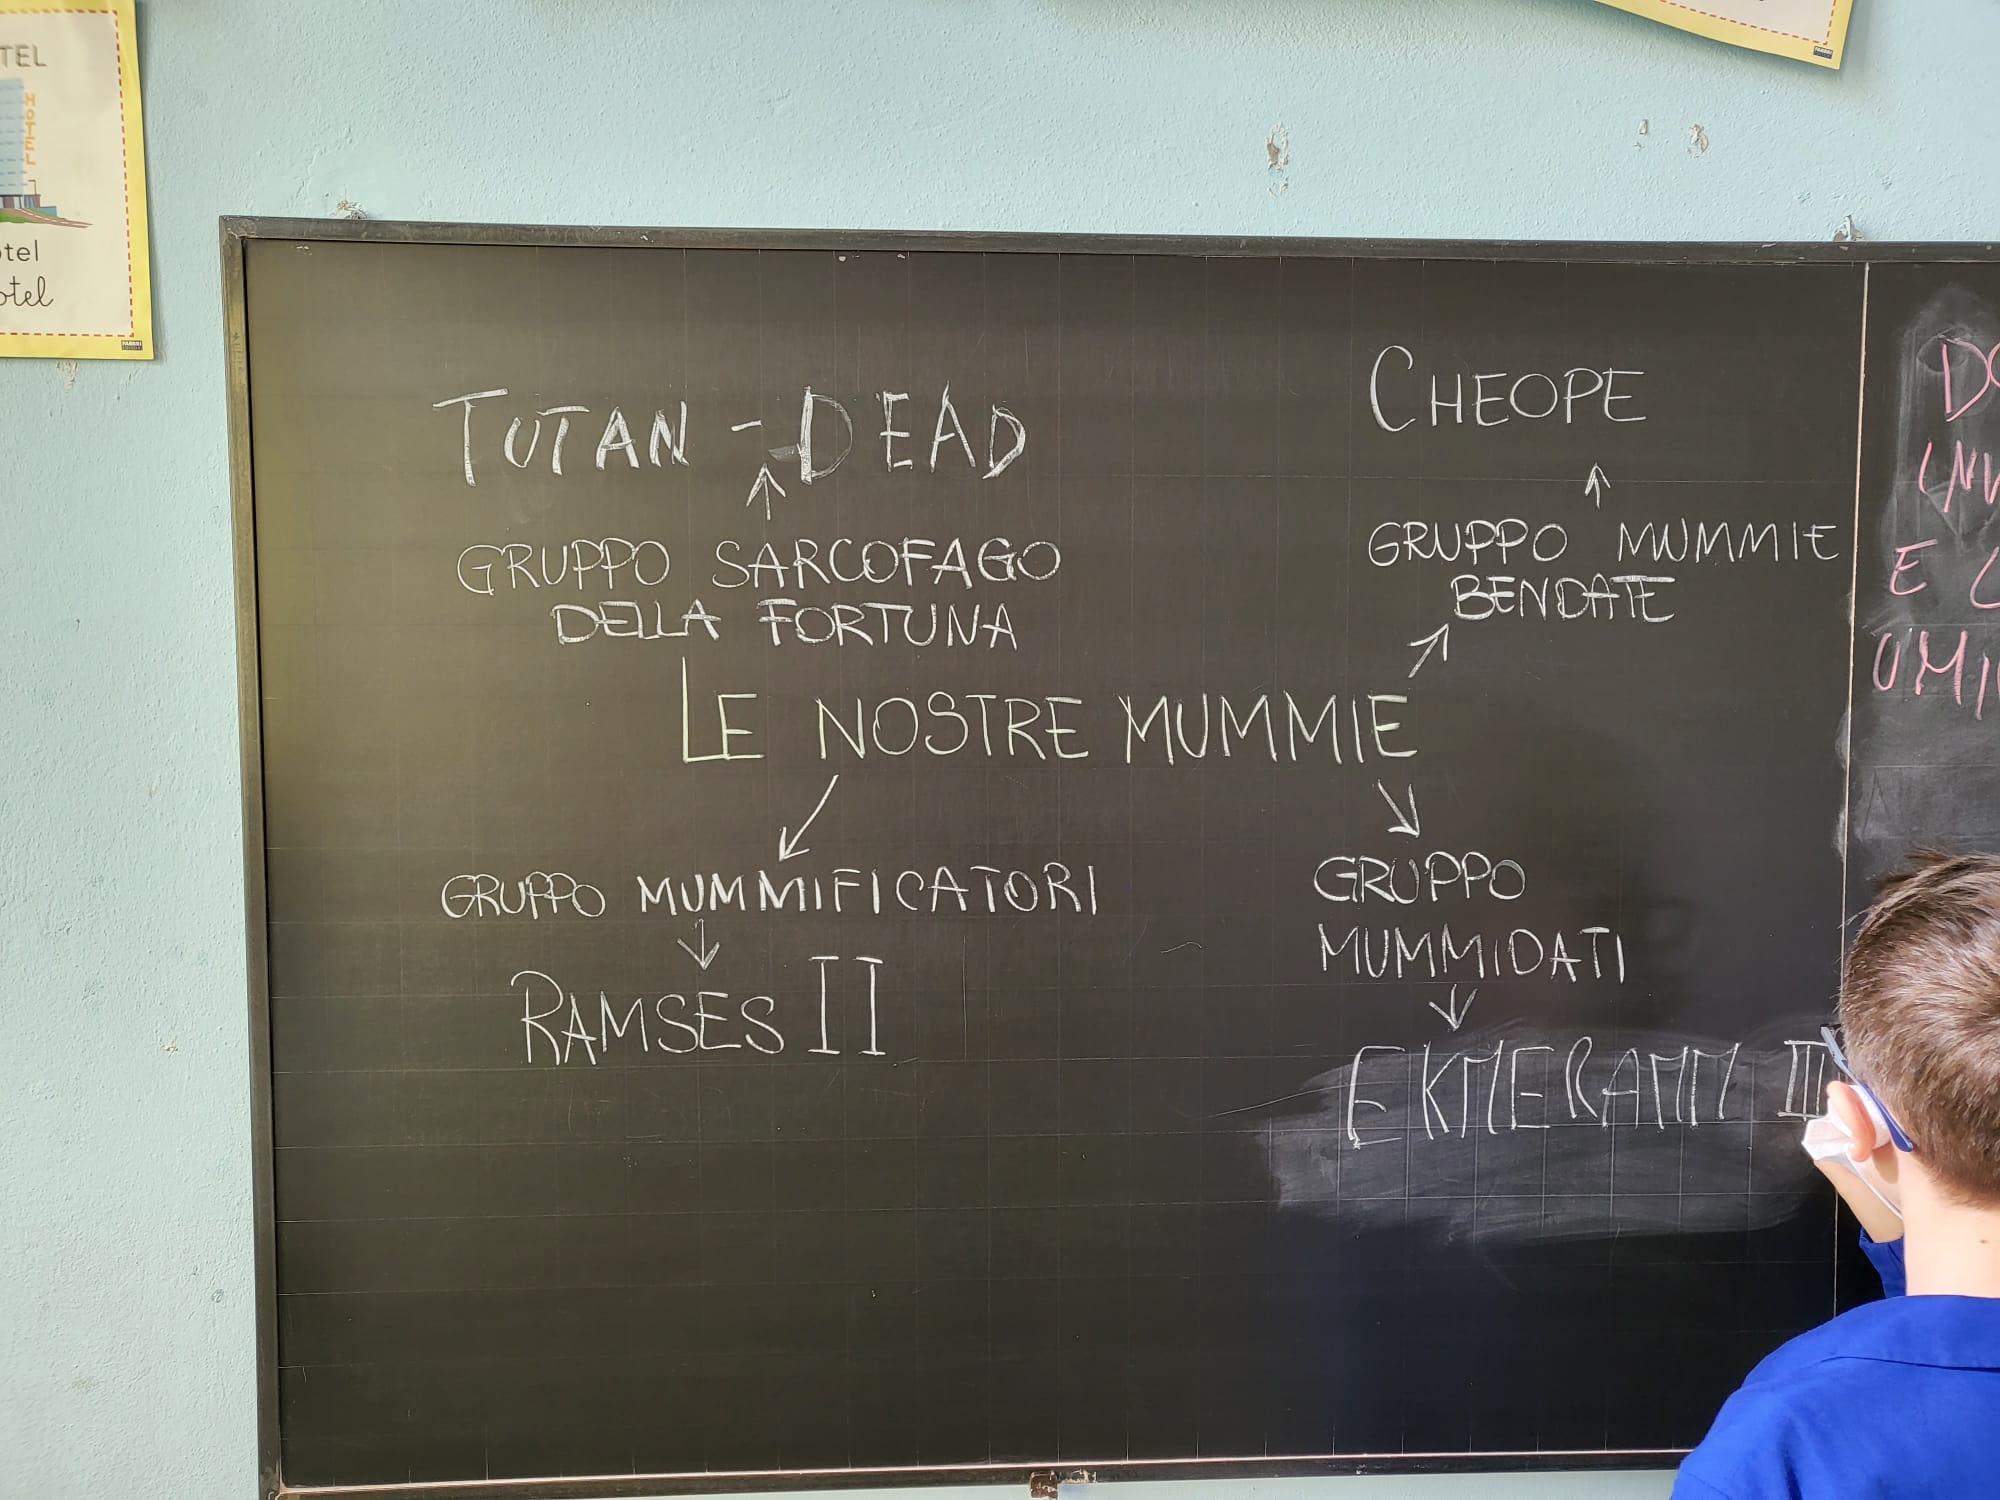 TEL
HOTEL
otel
otel
TUTAN - DEAD
GRUPPO SARCOFAGO
DELLA FORTUNA
CHEOPE
GRUPPO MUMMIE
BENDATE
LE NOSTRE MUMMIE
GRUPPO MUMMIFICATORI
RAMSES II
GRUPPO
MUMMIDATI
EKMERAMM III
DO
INV
E C
UMI